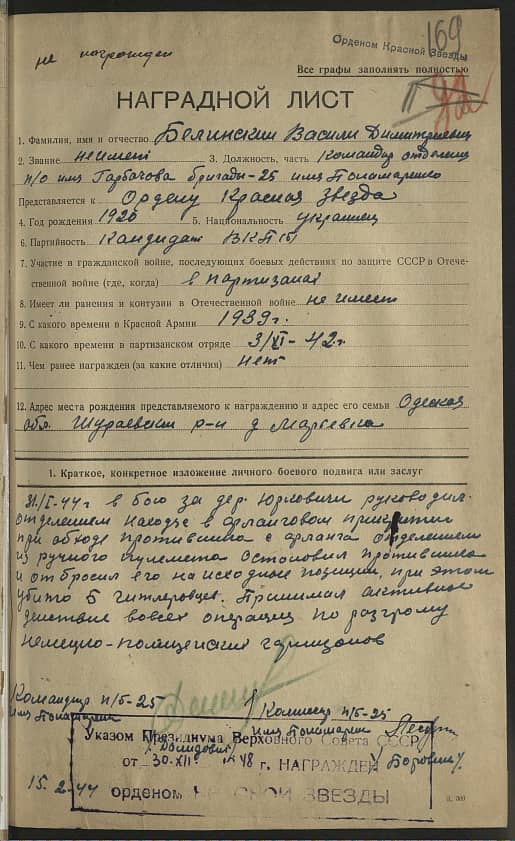 169
не награжден
Орденом Красной Звезды
Все графы заполнять полностью
НАГРАДНОЙ ЛИСТ
1. Фамилия, имя и отчество Белинский Васили Димитриевич
2. Звание неимеет 3. Должность, часть Командир отделения
п/о имя Горбачова бригады-25 имя Понамаренко
Представляется к Ордену Красная звезда
4. Год рождения 1920 5. Национальность украинец
6. Партийность Кандидат ВКП(б)
7. Участие в гражданской войне, последующих боевых действиях по защите СССР в Отече-
ственной войне (где, когда) в партизанах
8. Имеет ли ранения и контузии в Отечественной войне не имеет
9. С какого времени в Красной Армии 1939г.
10. С какого времени в партизанском отряде 3/XI-42г.
11. Чем ранее награжден (за какие отличия) нет
12. Адрес места рождения представляемого к награждению и адрес его семьи Одеская
обл. р-н д
1. Краткое, конкретное изложение личного боевого подвига или заслуг
31/I-44г в бою за дер. Юрковичи руководил
отделением находясь в прикрытии
при обходе противника с фланга отделением
из ручного пулемета остановил противника
и отбросил его на исходные позиции, при этом
убито 5 гитлеровцев. Принимал активное
действие вовсех операциях по разгрому
немецко-полицейских гарнизонов
Командир п/б-25
имя Понамаренк
Комиссар п/б-25
имя Понамаренк
Указом Президиума Верховного Совета СССР
/Демидович/
от 30.XII. 1948 г. НАГРАЖДЕН
/Боровик/
15.2-44 орденом КРАСНОЙ ЗВЕЗДЫ